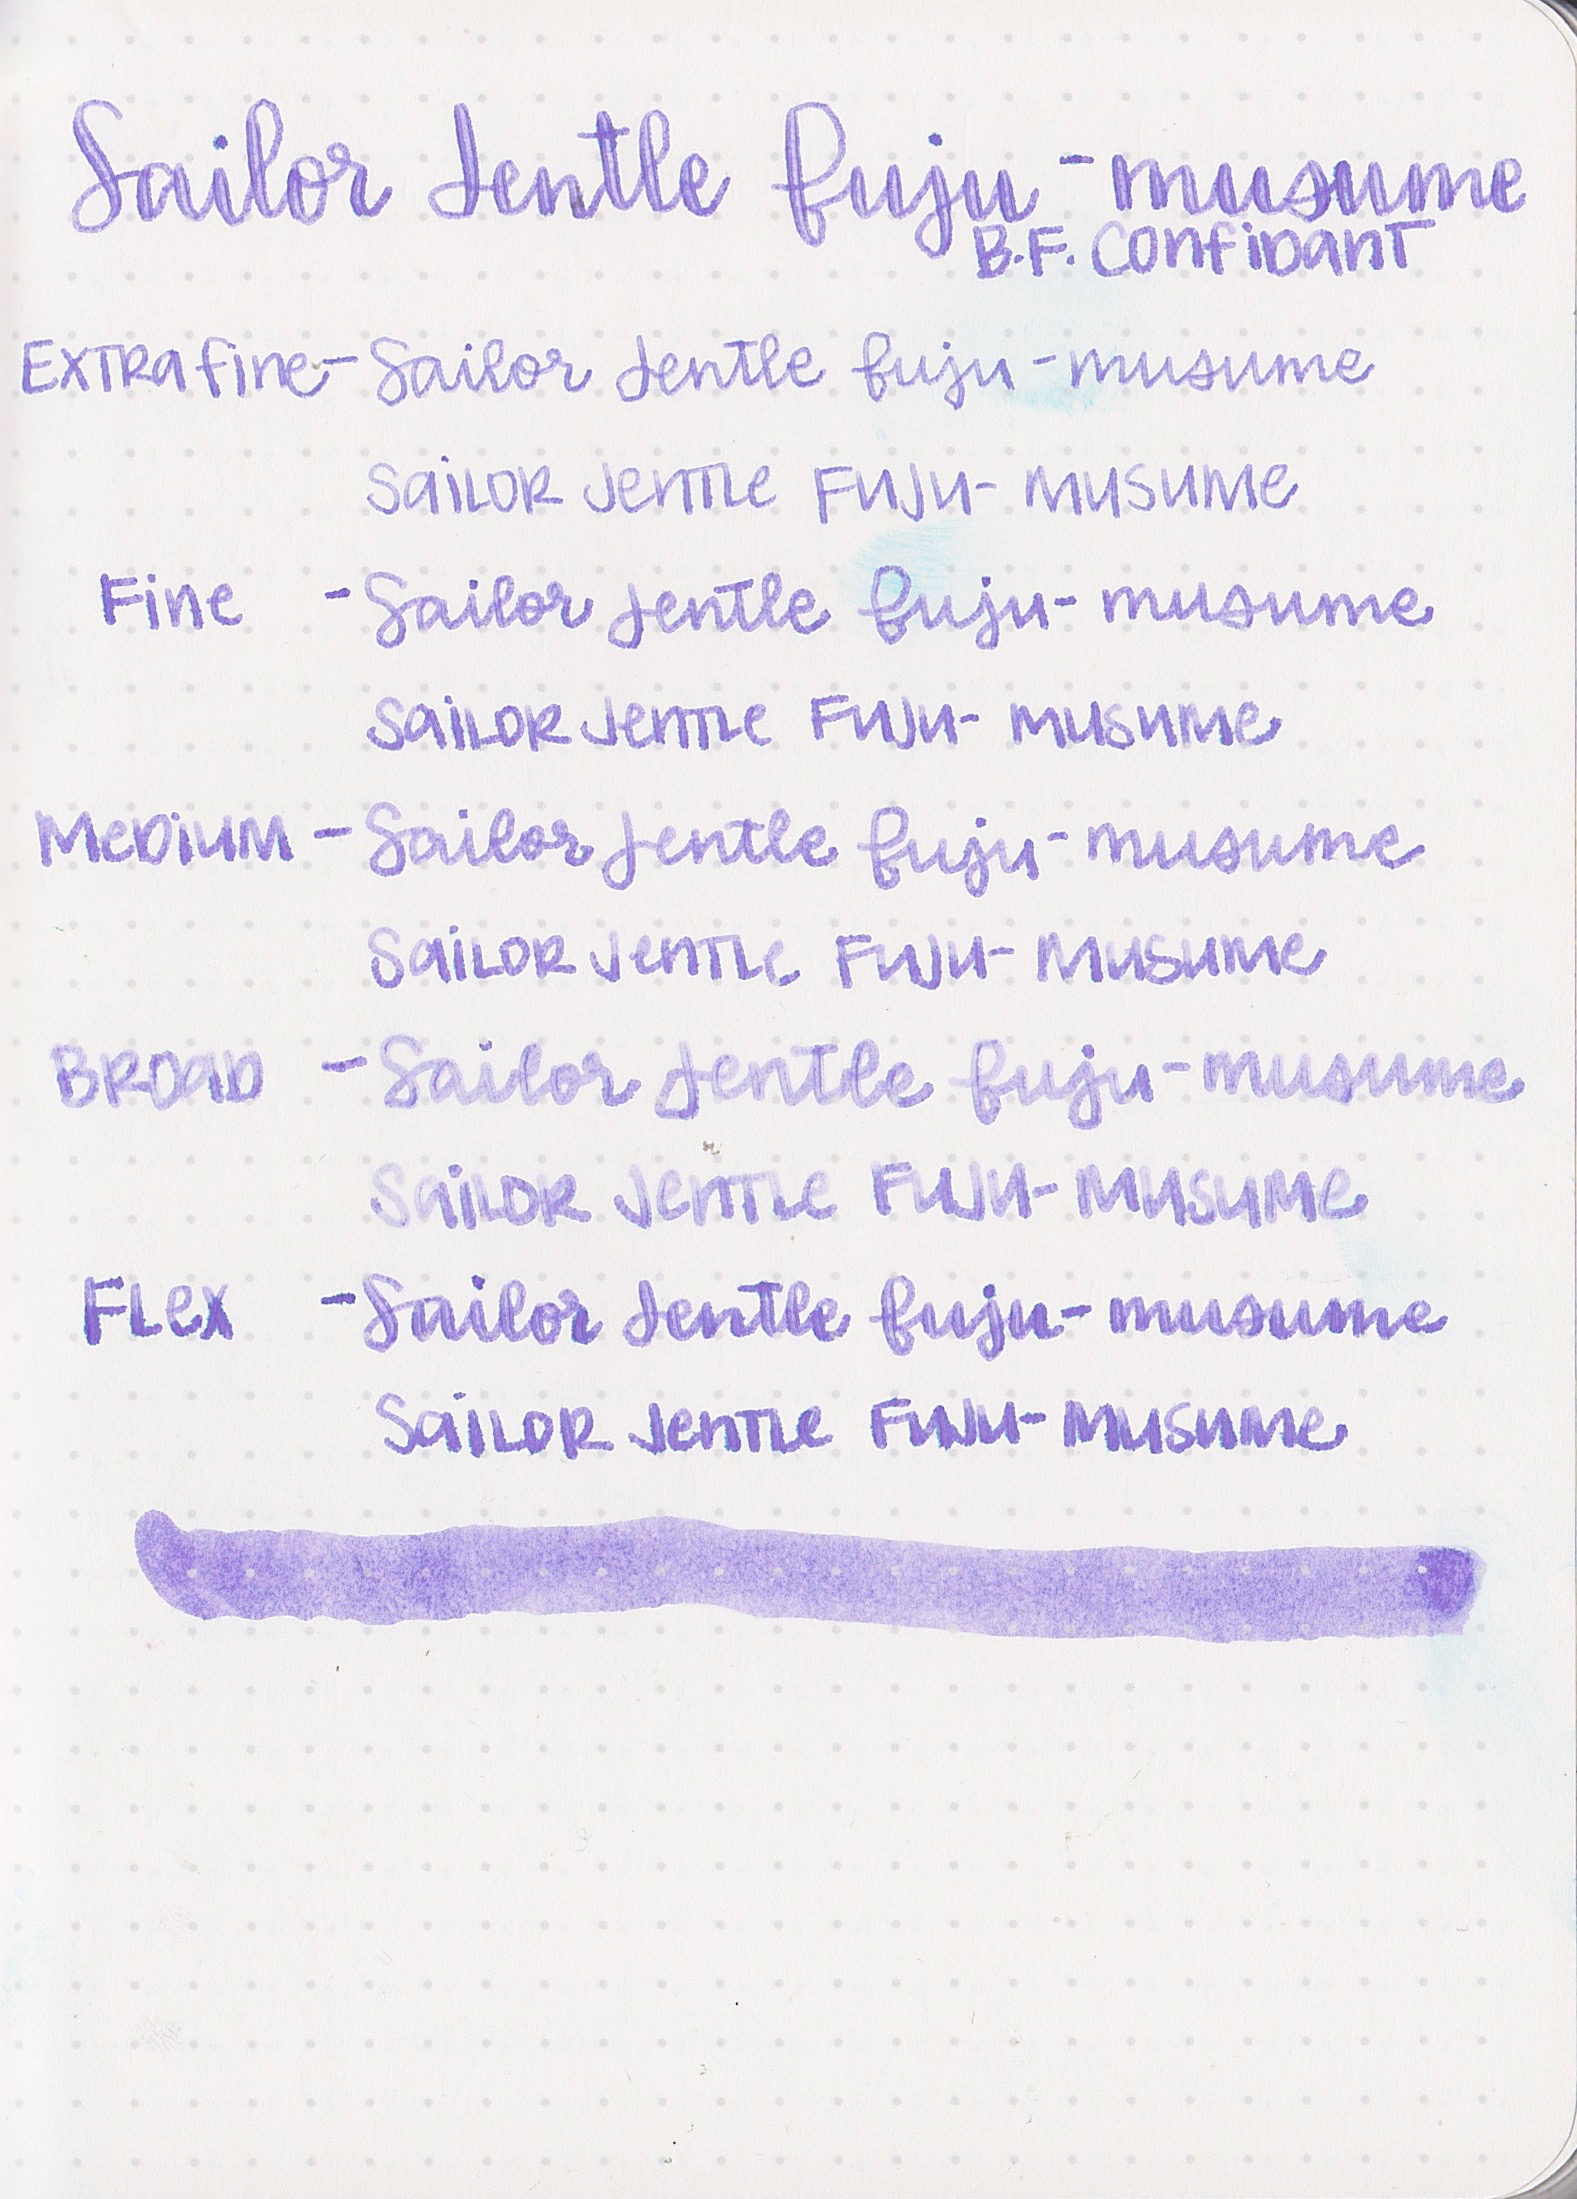 Sailor Jentle fuju-musume
B.F. Confidant
Extra fine - Sailor Jentle fuju-musume
Sailor Jentle Fuju-musume
Fine - Sailor Jentle fuju-musume
Sailor Jentle Fuju-musume
Medium - Sailor Jentle fuju-musume
Sailor Jentle Fuju-musume
Broad - Sailor Jentle fuju-musume
Sailor Jentle Fuju-musume
Flex - Sailor Jentle fuju-musume
Sailor Jentle Fuju-musume